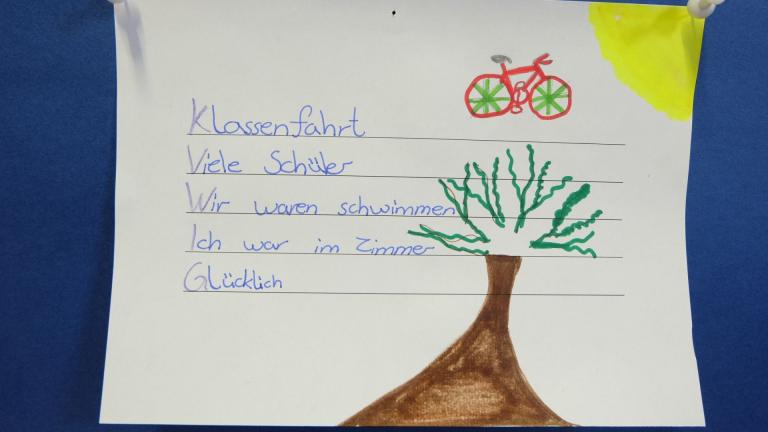 Klassenfahrt
Viele Schüler
Wir waren schwimmen
Ich war im Zimmer
Glücklich